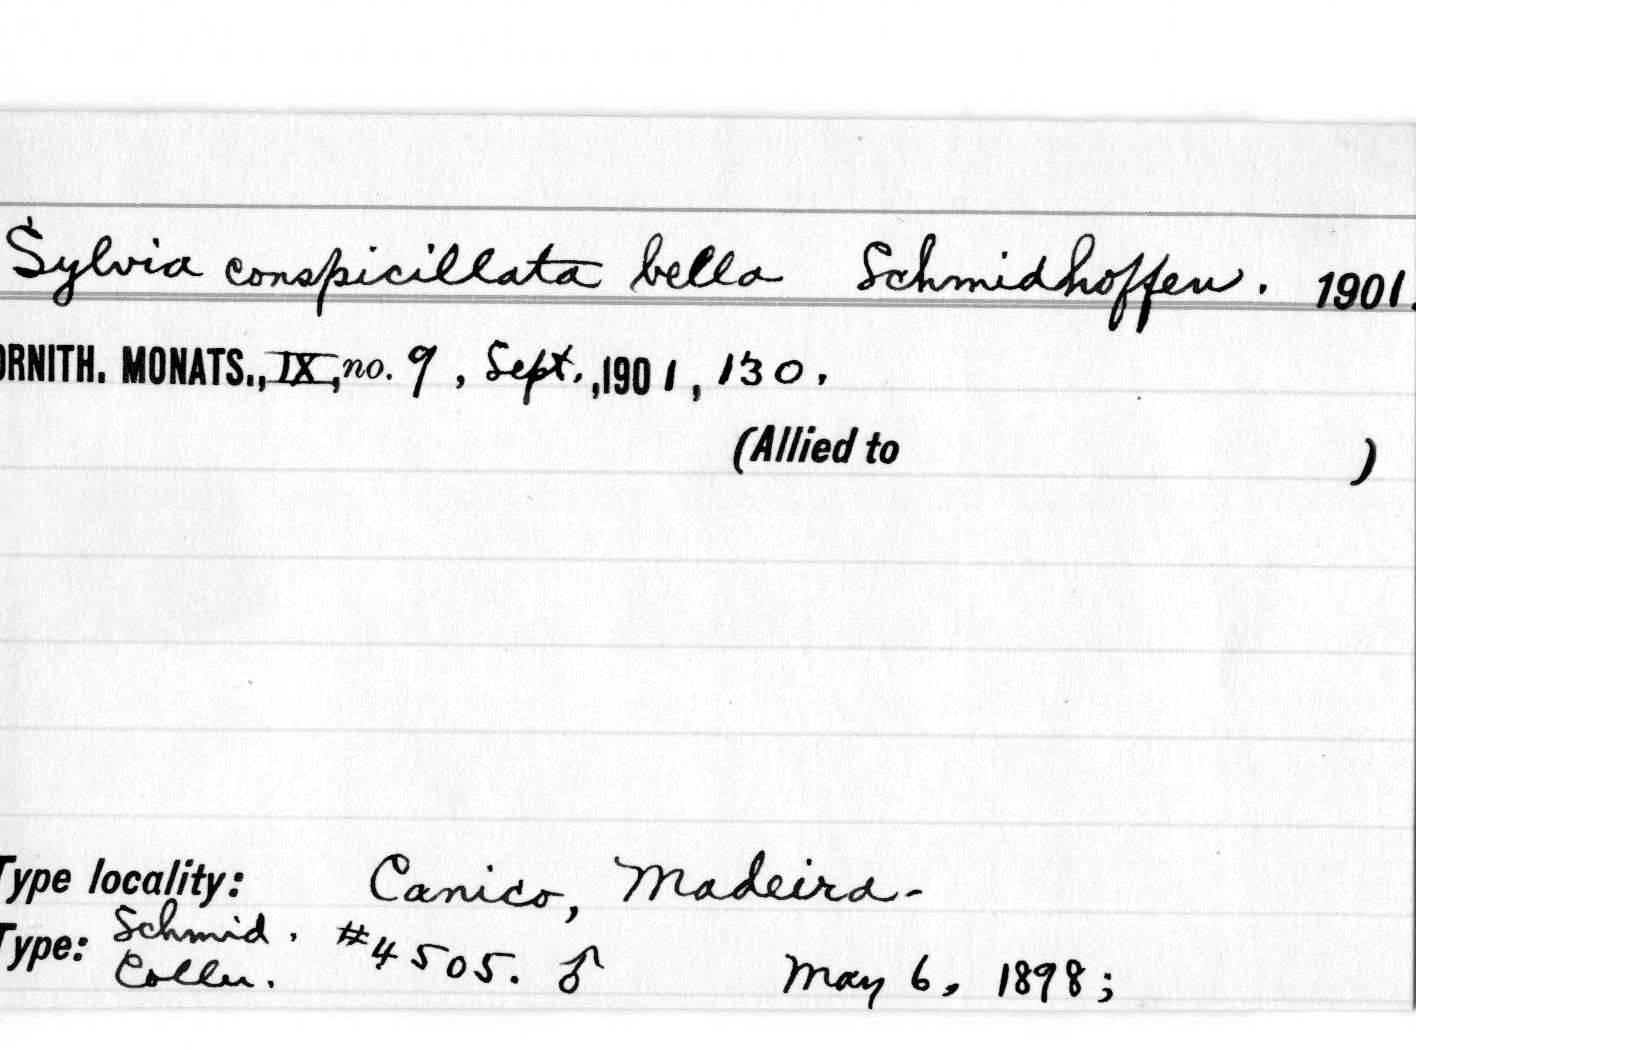 Sylvia conspicillata bella Schmidhoffen. 1901.
ORNITH. MONATS., IX, no. 9, Sept., 1901, 130.
(Allied to )
Type locality: Canico, Madeira-
Type: Schmid. Colln. #4505. ♂ May 6, 1898;